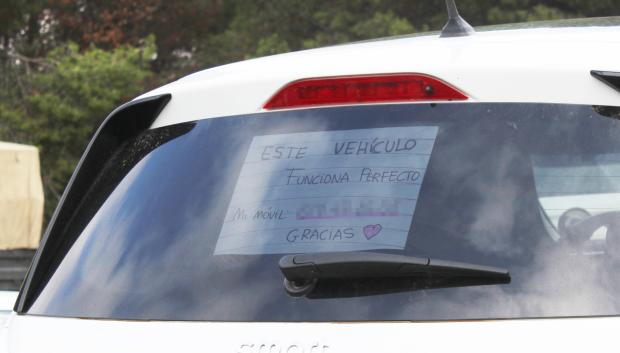 ESTE VEHÍCULO
FUNCIONA PERFECTO
MI MÓVIL:
GRACIAS